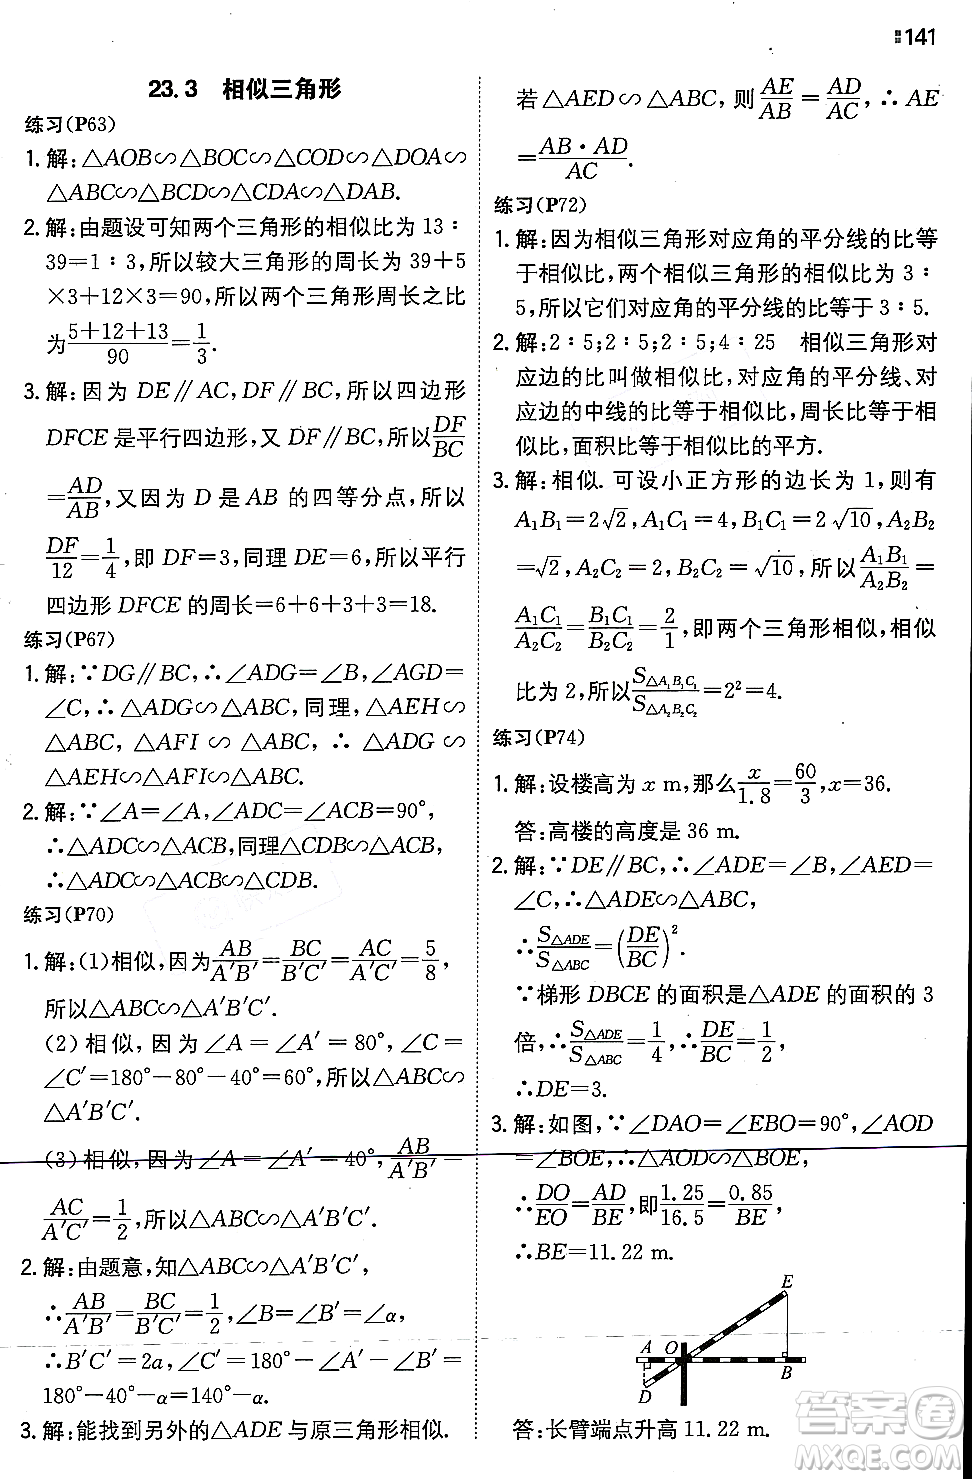 141
23.3 相似三角形
练习(P63)
1.解:△AOB∽△BOC∽△COD∽△DOA∽
△ABC∽△BCD∽△CDA∽△DAB.
2.解:由题设可知两个三角形的相似比为13∶
39=1∶3,所以较大三角形的周长为39+5
×3+12×3=90,所以两个三角形周长之比
为(5+12+13)/90=1/3.
3.解:因为DE∥AC,DF∥BC,所以四边形
DFCE是平行四边形,又DF∥BC,所以DF/BC
=AD/AB,又因为D是AB的四等分点,所以
DF/12=1/4,即DF=3,同理DE=6,所以平行
四边形DFCE的周长=6+6+3+3=18.
练习(P67)
1.解:∵DG∥BC,∴∠ADG=∠B,∠AGD=
∠C,∴△ADG∽△ABC,同理,△AEH∽
△ABC,△AFI∽△ABC,∴△ADG∽
△AEH∽△AFI∽△ABC.
2.解:∵∠A=∠A,∠ADC=∠ACB=90°,
∴△ADC∽△ACB,同理△CDB∽△ACB,
∴△ADC∽△ACB∽△CDB.
练习(P70)
1.解:(1)相似,因为AB/A′B′=BC/B′C′=AC/A′C′=5/8,
所以△ABC∽△A′B′C′.
(2)相似,因为∠A=∠A′=80°,∠C=
∠C′=180°-80°-40°=60°,所以△ABC∽
△A′B′C′.
(3)相似,因为∠A=∠A′=40°,AB/A′B′=
AC/A′C′=1/2,所以△ABC∽△A′B′C′.
2.解:由题意,知△ABC∽△A′B′C′,
∴AB/A′B′=BC/B′C′=1/2,∠B=∠B′=∠α,
∴B′C′=2a,∠C=180°-∠A′-∠B′=
180°-40°-α=140°-α.
3.解:能找到另外的△ADE与原三角形相似.
若△AED∽△ABC,则AE/AB=AD/AC,∴AE
=AB·AD/AC.
练习(P72)
1.解:因为相似三角形对应角的平分线的比等
于相似比,两个相似三角形的相似比为3∶
5,所以它们对应角的平分线的比等于3∶5.
2.解:2∶5;2∶5;2∶5;4∶25 相似三角形对
应边的比叫做相似比,对应角的平分线、对
应边的中线的比等于相似比,周长比等于相
似比,面积比等于相似比的平方.
3.解:相似.可设小正方形的边长为1,则有
A₁B₁=2√2,A₁C₁=4,B₁C₁=2√10,A₂B₂
=√2,A₂C₂=2,B₂C₂=√10,所以A₁B₁/A₂B₂=
A₁C₁/A₂C₂=B₁C₁/B₂C₂=2/1,即两个三角形相似,相似
比为2,所以S△A₁B₁C₁/S△A₂B₂C₂=2²=4.
练习(P74)
1.解:设楼高为x m,那么x/1.8=60/3,x=36.
答:高楼的高度是36 m.
2.解:∵DE∥BC,∴∠ADE=∠B,∠AED=
∠C,∴△ADE∽△ABC,
∴S△ADE/S△ABC=(DE/BC)².
∵梯形DBCE的面积是△ADE的面积的3
倍,∴S△ADE/S△ABC=1/4,∴DE/BC=1/2,
∴DE=3.
3.解:如图,∵∠DAO=∠EBO=90°,∠AOD
=∠BOE,∴△AOD∽△BOE,
∴DO/EO=AD/BE,即1.25/16.5=0.85/BE,
∴BE=11.22 m.
E
A O
D B
答:长臂端点升高11.22 m.
答案圈
MXQE.COM